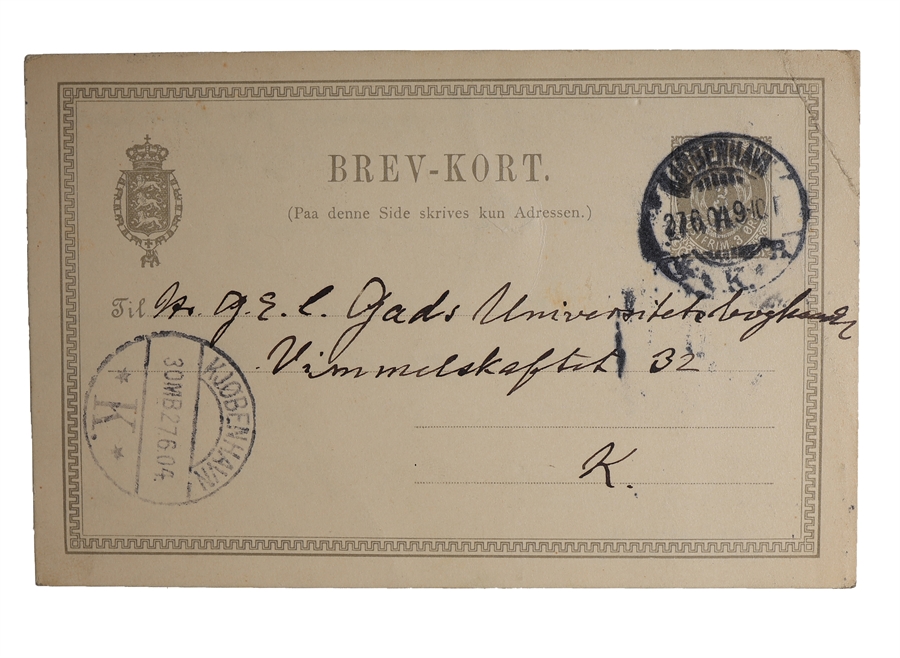 BREV-KORT.
(Paa denne Side skrives kun Adressen.)
KJØBENHAVN
27.6.04.9-10
K.
Til Hr. G. E. C. Gads Universitetsboghandel
Vimmelskaftet 32
K.
KJØBENHAVN
30MB27.6.04.
K.